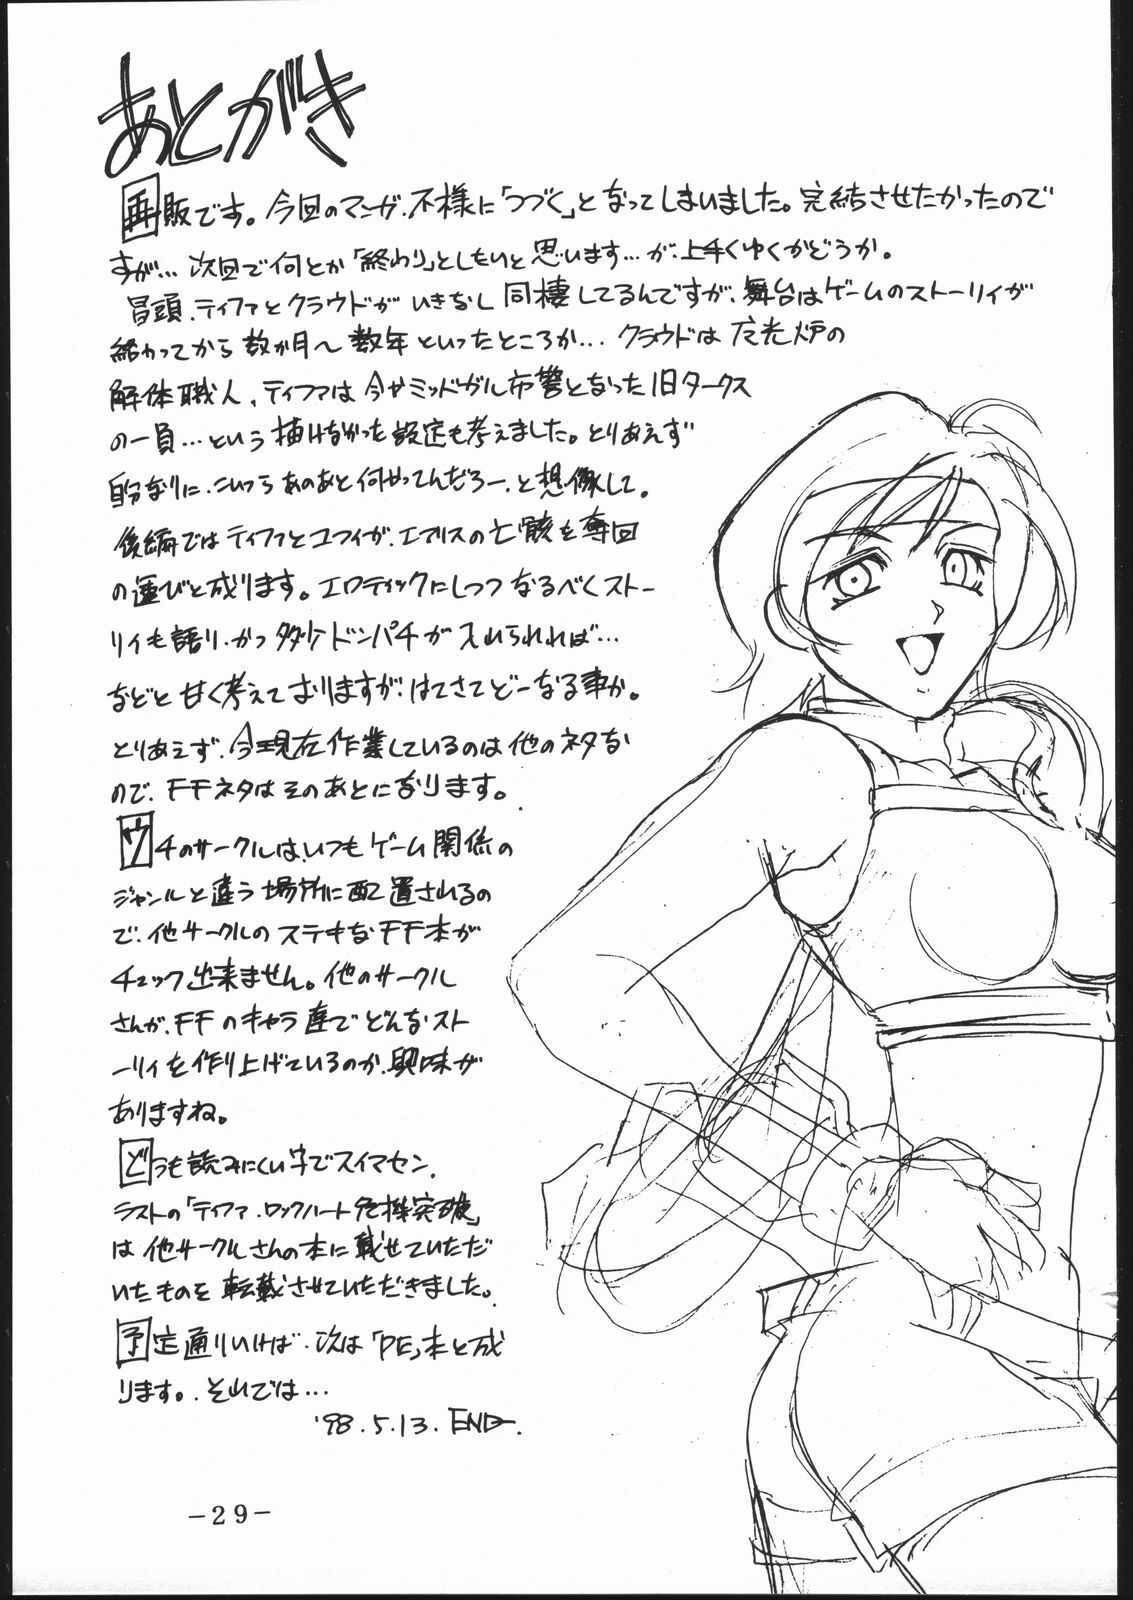 あとがき
再販です。今回のマンガ、不様に「つづく」となってしまいました。完結させたかったので
すが…次回で何とか「終わり」としたいと思います…が、上手くゆくかどうか。
冒頭、ティファとクラウドがいきなし同棲してるんですが、舞台はゲームのストーリィが
終わってから数か月〜数年といったところか…クラウドは魔光炉の
解体職人、ティファは今やミッドガル市警となった旧タークス
の一員…という描けなかった設定も考えました。とりあえず
自分なりに、こいつらあのあと何やってんだろー、と想像して。
後編ではティファとユフィが、エアリスの亡骸を奪回
の運びと成ります。エロティックにしつつなるべくストー
リィも語り、かつ ドンパチが入れられれば…
などと甘く考えておりますが、はてさてどーなる事か。
とりあえず、今現在作業しているのは他のネタな
ので、FFネタはそのあとになります。
ウチのサークルは、いつもゲーム関係の
ジャンルと違う場所に配置されるの
で、他サークルのステキなFF本が
チェック出来ません。他のサークル
さんが、FFのキャラ達でどんなスト
ーリィを作り上げているのか、興味が
ありますね。
どうも読みにくい字でスイマセン。
ラストの「ティファ・ロックハート危機突破」
は他サークルさんの本に載せていただ
いたものを転載させていただきました。
予定通りいけば、次は「PE」本と成
ります。それでは…
'98.5.13. END.
-29-